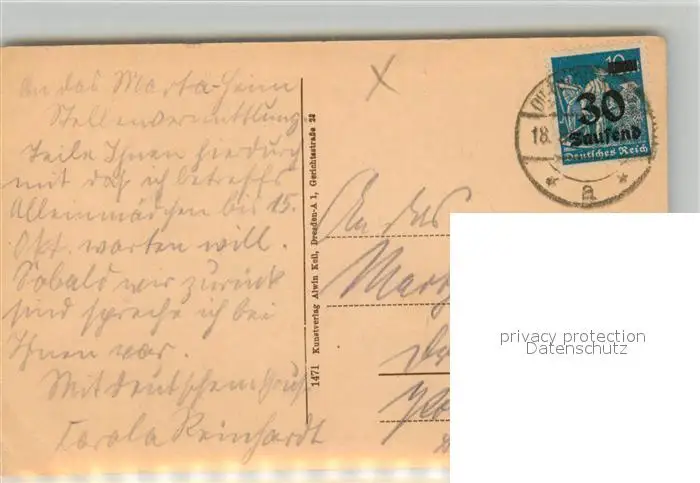 An das Marta-Heim
Stellenvermittlung.
Teile Ihnen hierdurch
mit daß ich betreffs
Alleinmädchen bis 15.
Okt. warten will.
Sobald wir zurück
sind spreche ich bei
Ihnen vor.
Mit deutschem Gruß
Carola Reinhardt
1471 Kunstverlag Alwin Keil, Dresden-A 1, Gerichtsstraße 22
x
10
30
Tausend
Deutsches Reich
18.
* a *
An das
privacy protection
Datenschutz